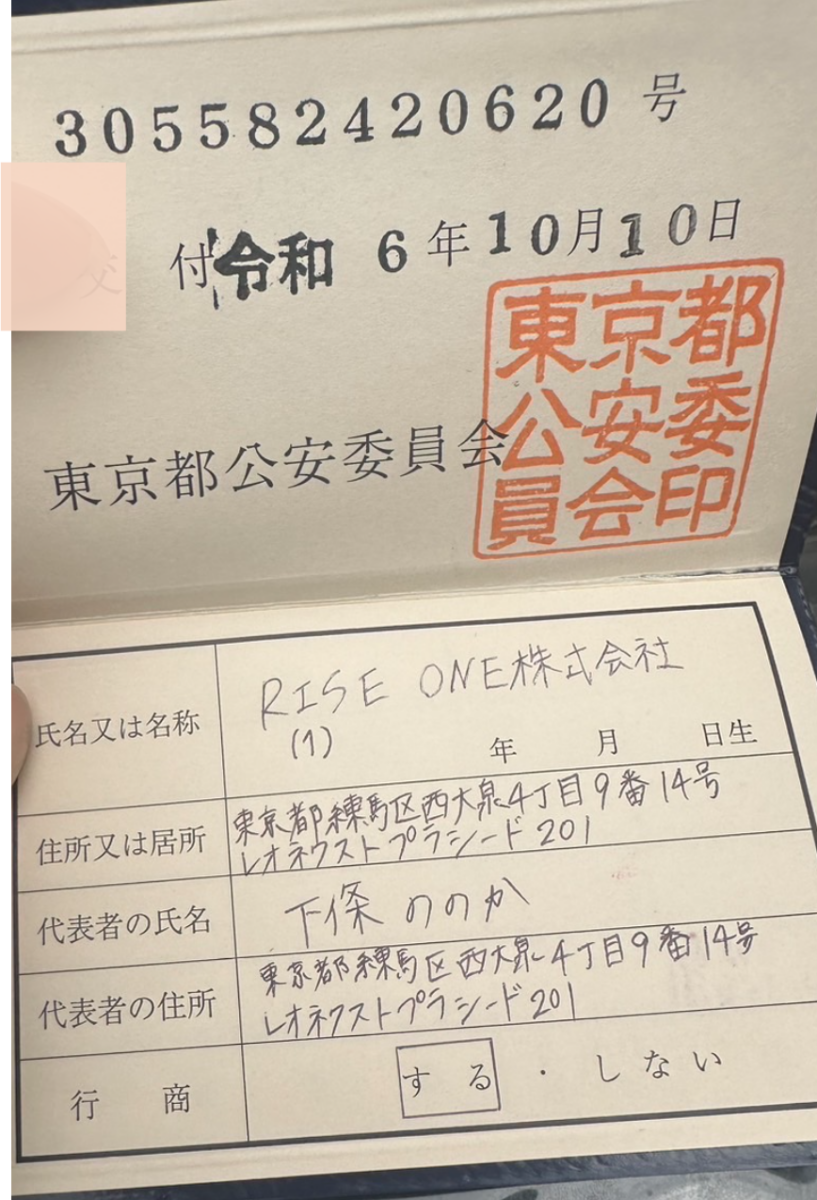 305582420620 号
交 付 令和 6 年 10 月 10 日
東京都公安委員会
東京都
公安委
員会印
氏名又は名称 RISE ONE株式会社
(1) 年 月 日生
住所又は居所 東京都練馬区西大泉4丁目9番14号
レオネクストプラシード201
代表者の氏名 下條ののか
代表者の住所 東京都練馬区西大泉4丁目9番14号
レオネクストプラシード201
行商 する ・ しない